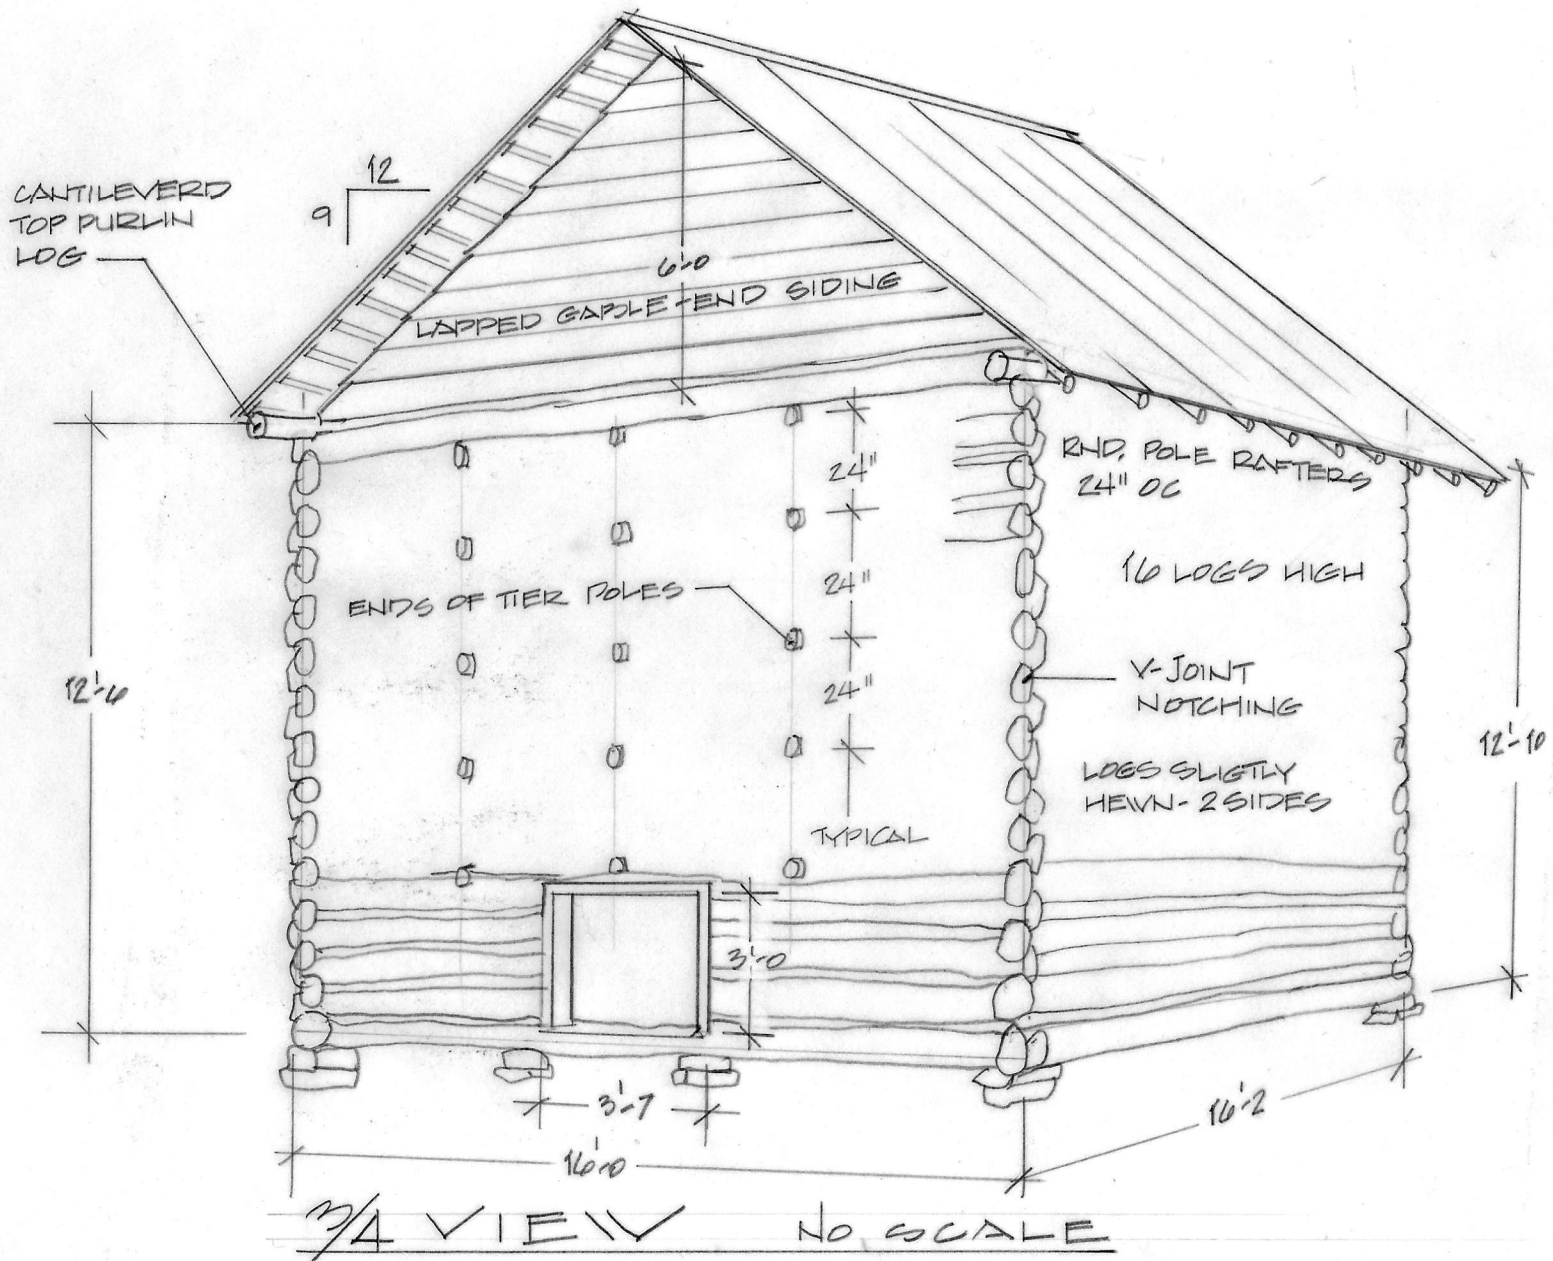 CANTILEVERD
TOP PURLIN
LOG
12
9
6'-0
LAPPED GABLE-END SIDING
24"
RND. POLE RAFTERS
24" OC
24"
16 LOGS HIGH
ENDS OF TIER POLES
24"
V-JOINT
NOTCHING
12'-6
12'-10
LOGS SLIGTLY
HEWN-2 SIDES
TYPICAL
3'-0
3'-7
16'-2
16'-0
3/4 VIEW NO SCALE